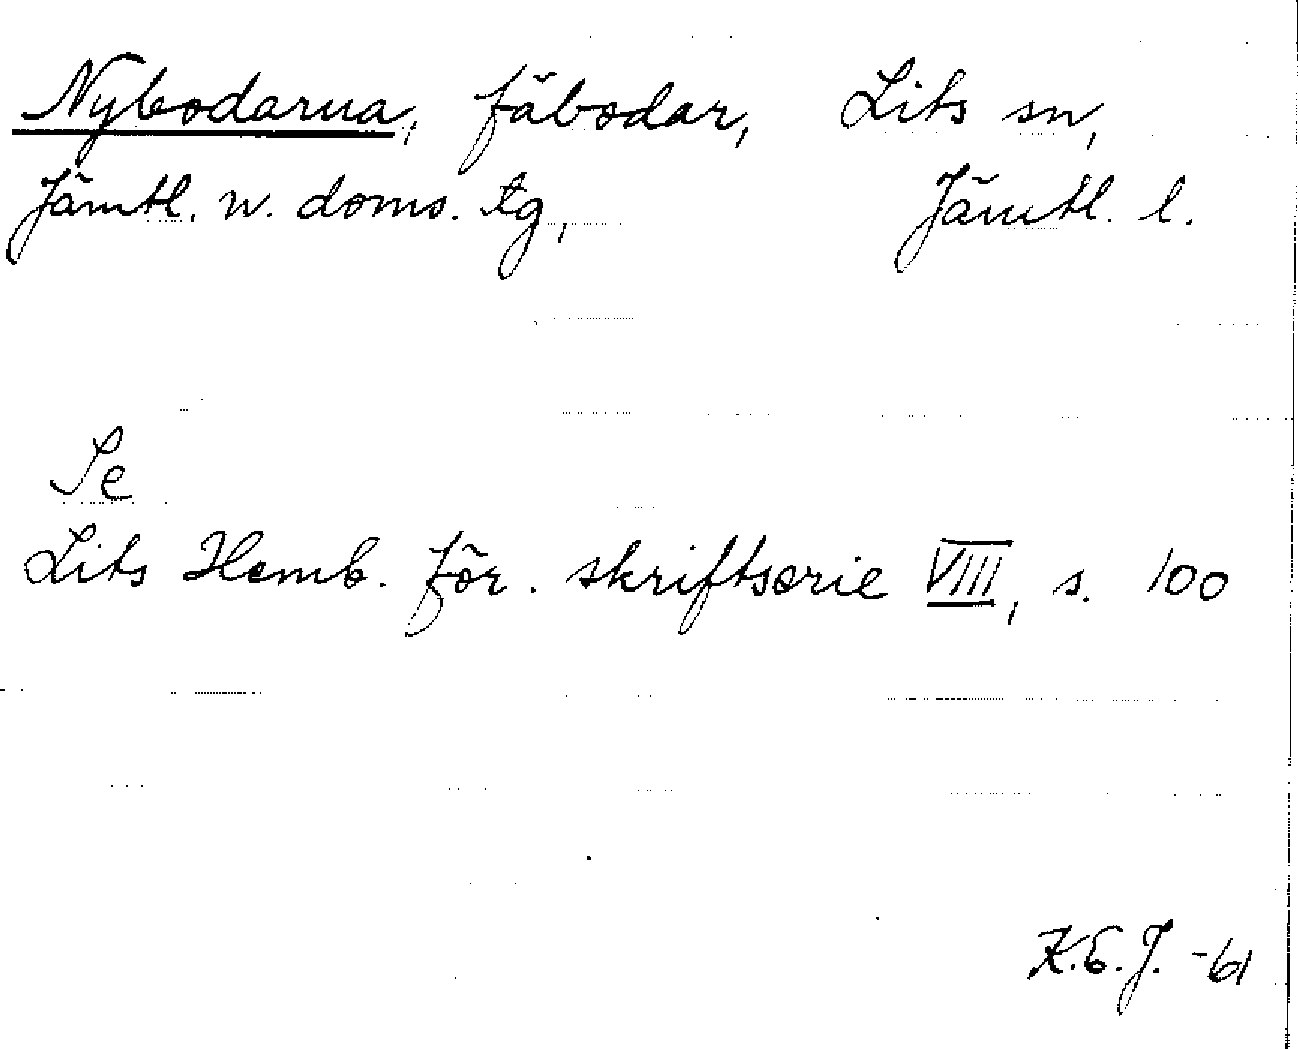 Nybodarna, fäbodar, Lits sn,
Jämtl. n. doms. tg, Jämtl. l.
Se
Lits Hemb. för. skriftserie VIII, s. 100
K.E.J. -61